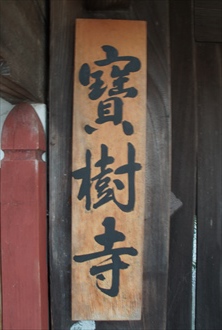 寶樹寺